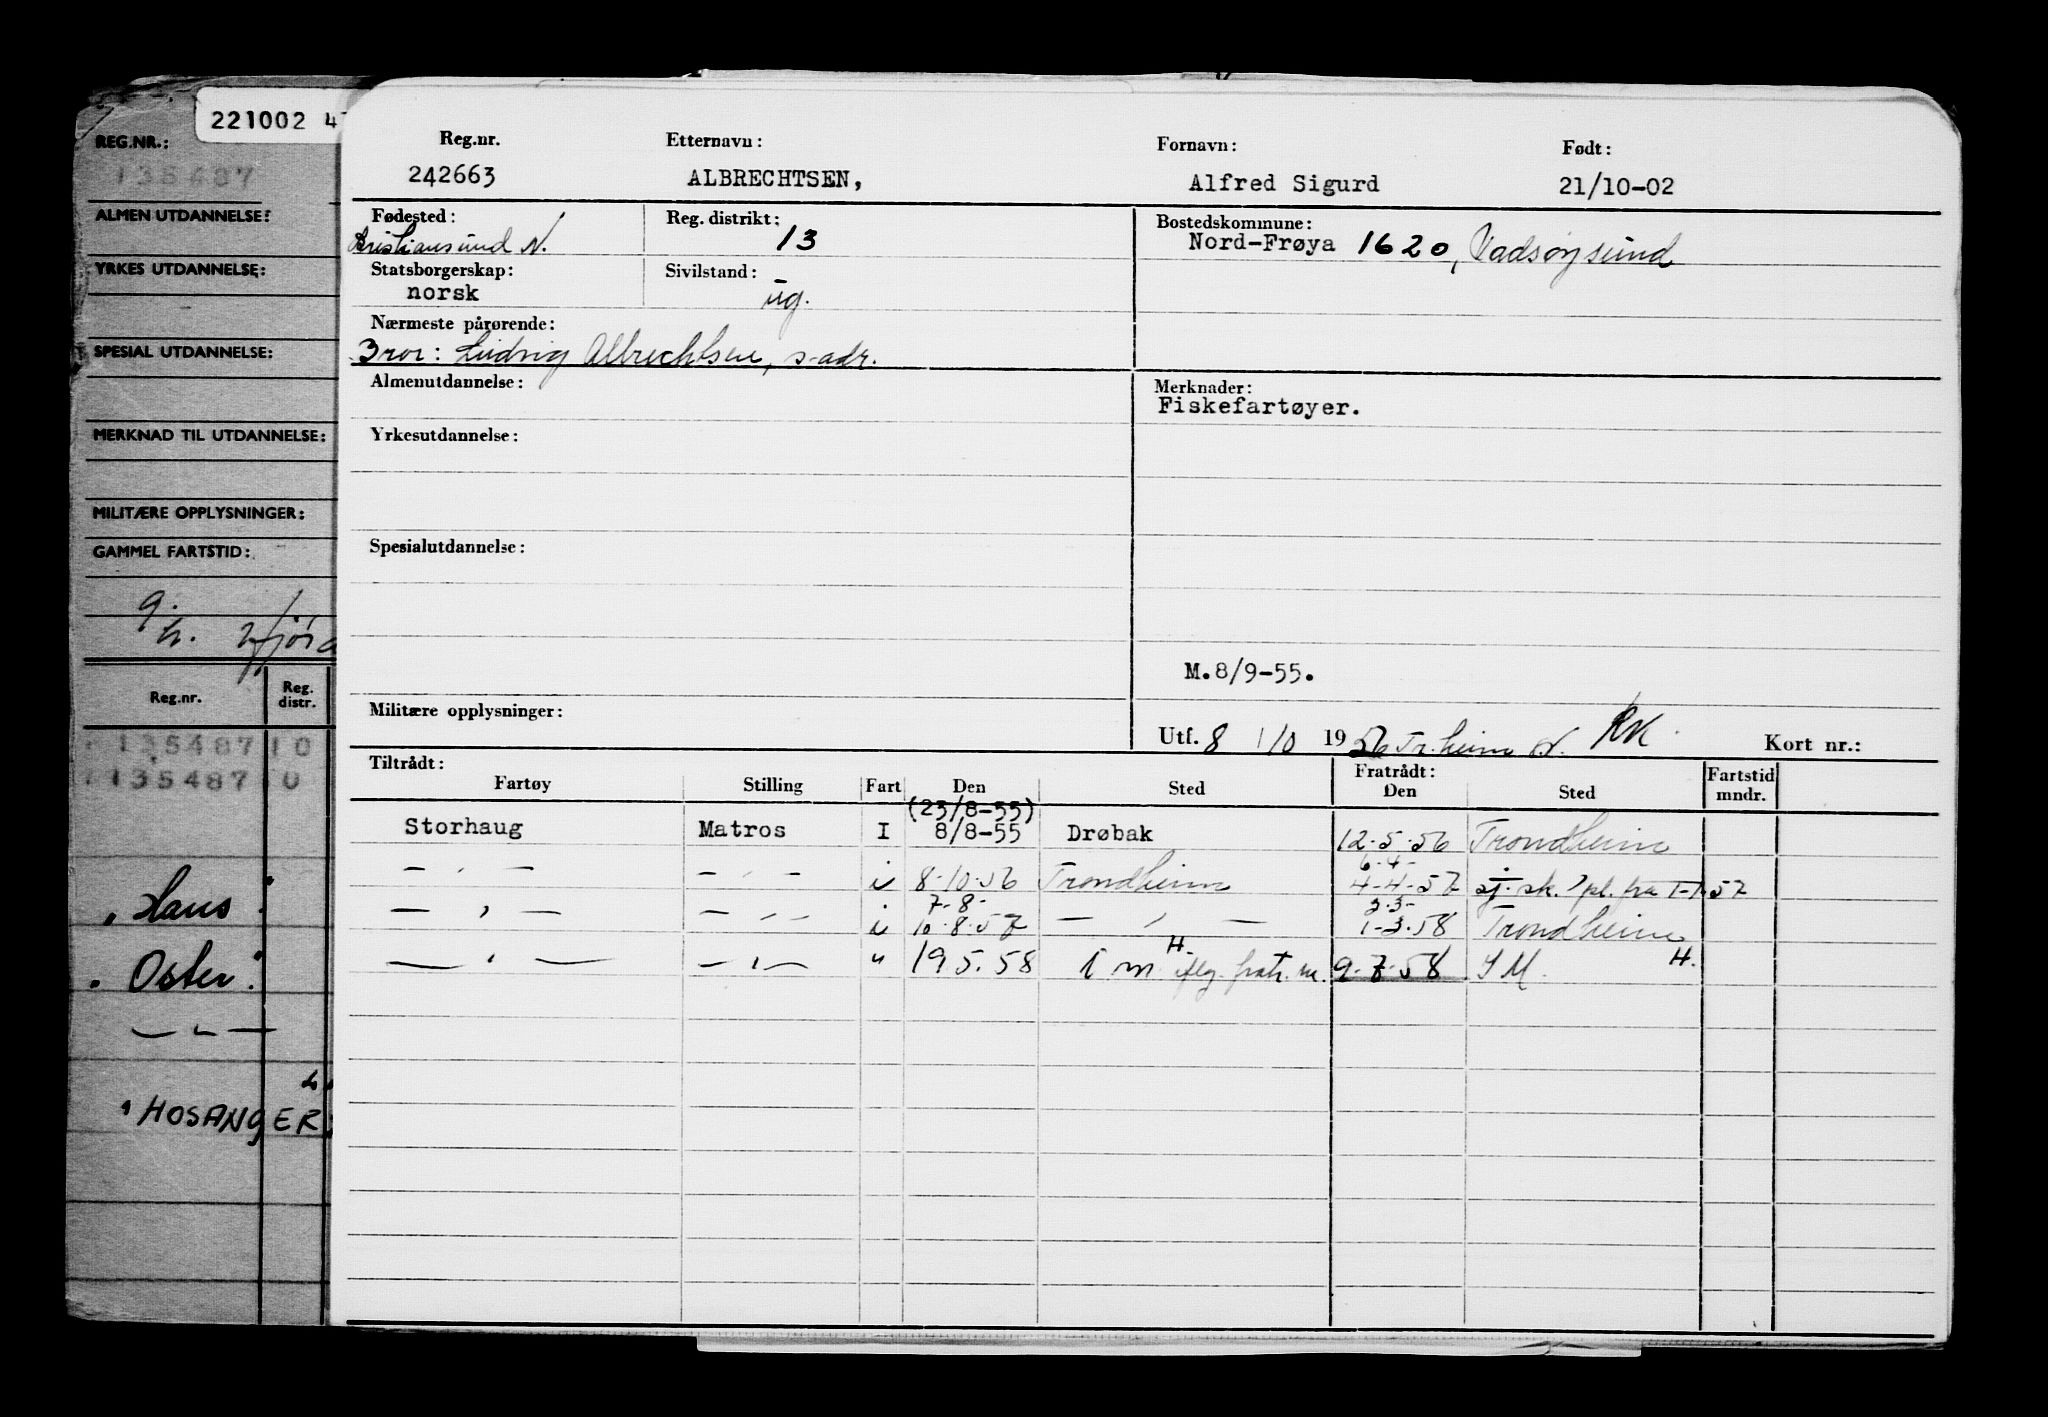 221002
REG.NR.:
135487
ALMEN UTDANNELSE:
YRKES UTDANNELSE:
SPESIAL UTDANNELSE:
MERKNAD TIL UTDANNELSE:
MILITÆRE OPPLYSNINGER:
GAMMEL FARTSTID:
Reg.nr. Reg. distr.
135487 10
135487 10
"Haus".
"Oster".
— " —
"HOSANGER"
Reg.nr. Etternavn: Fornavn: Født:
242663 ALBRECHTSEN, Alfred Sigurd 21/10-02
Fødested: Reg. distrikt: Bostedskommune:
Kristiansund N. 13 Nord-Frøya 1620, Vadsøysund
Statsborgerskap: Sivilstand:
norsk ug.
Nærmeste pårørende:
Bror: Ludvig Albrechtsen, s-adr.
Almenutdannelse: Merknader:
Fiskefartøyer.
Yrkesutdannelse:
Spesialutdannelse:
M.8/9-55.
Militære opplysninger:
Utf. 8/10 1956 Tr.heim N. RK Kort nr.:
Tiltrådt: Fratrådt: Fartstid
Fartøy Stilling Fart Den Sted Den Sted mndr.
(23/8-55)
Storhaug Matros I 8/8-55 Drøbak 12-5-56 Trondheim
6-4-
— " — — " — i 8-10-56 Trondheim 4-4-57 sj. sk. pl. fra 1-1-57
7-8- 3-3-
— " — — " — i 10-8-57 — " — 1-3-58 Trondheim
H.
— " — — " — " 19.5.58 i m. flg. fratr. m. 9-7-58 I M. H.